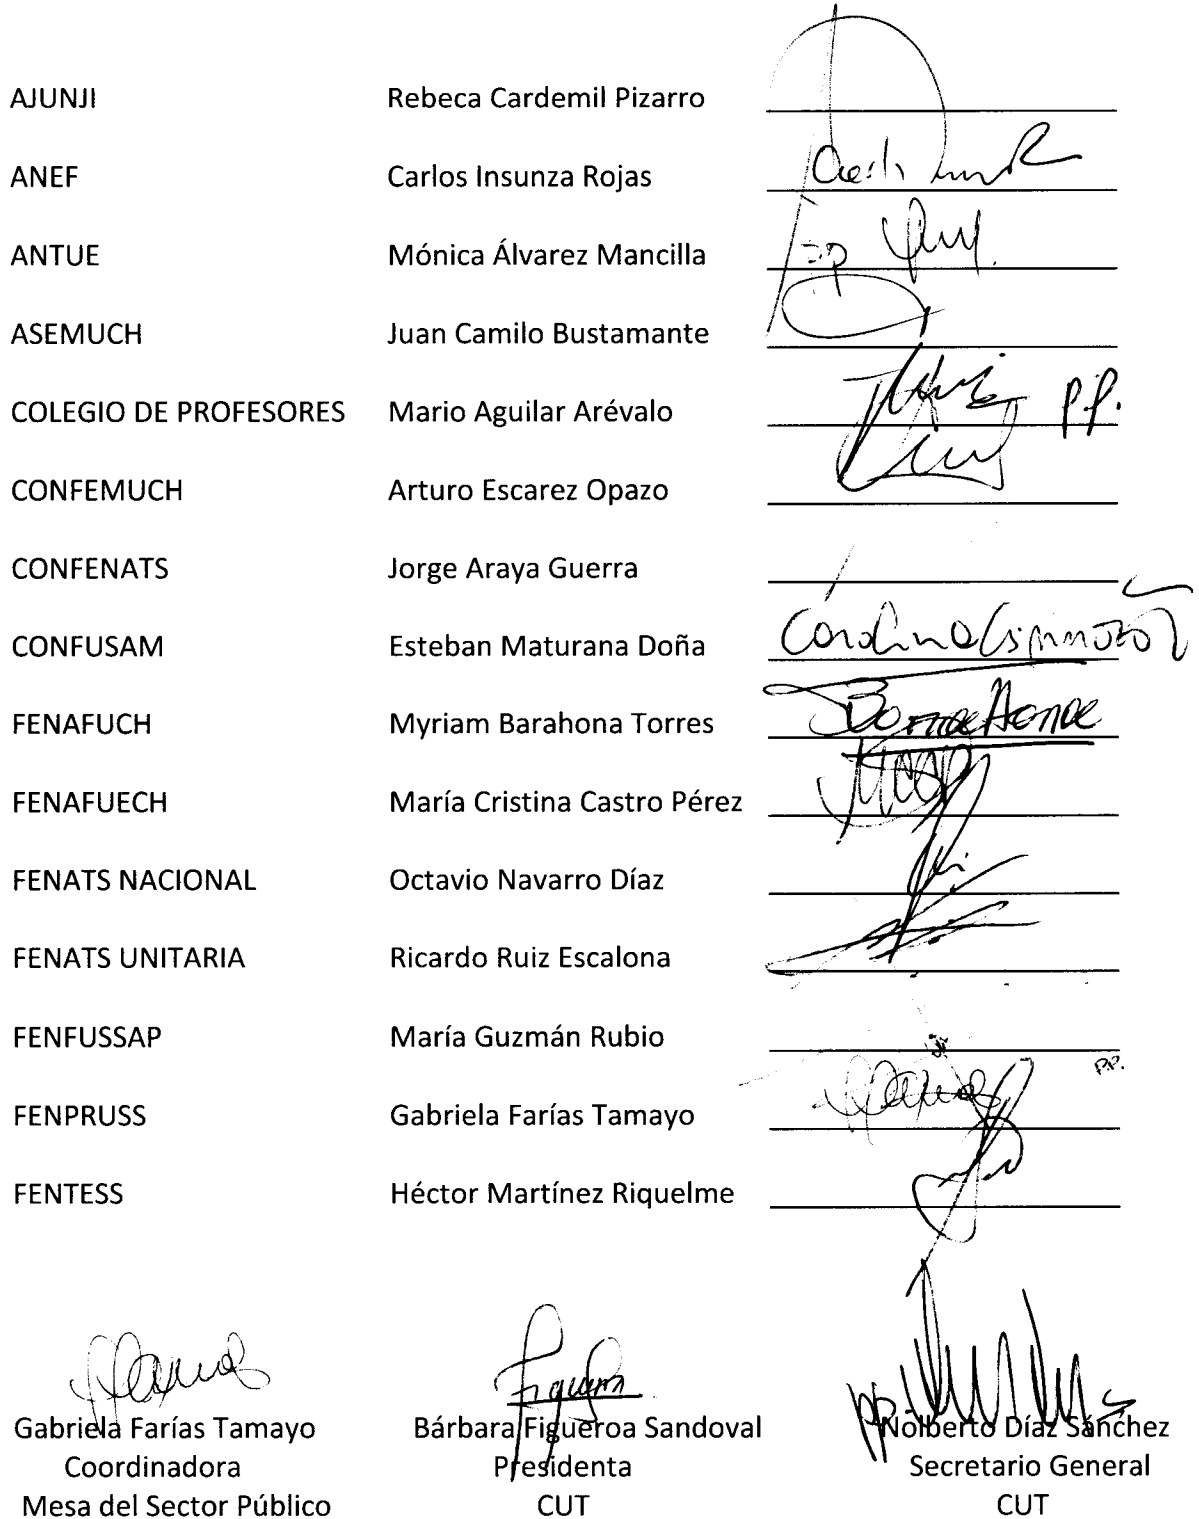 AJUNJI Rebeca Cardemil Pizarro
ANEF Carlos Insunza Rojas
ANTUE Mónica Álvarez Mancilla pp
ASEMUCH Juan Camilo Bustamante
COLEGIO DE PROFESORES Mario Aguilar Arévalo P.P.
CONFEMUCH Arturo Escarez Opazo
CONFENATS Jorge Araya Guerra
CONFUSAM Esteban Maturana Doña Carolina Espinoza
FENAFUCH Myriam Barahona Torres
FENAFUECH María Cristina Castro Pérez
FENATS NACIONAL Octavio Navarro Díaz
FENATS UNITARIA Ricardo Ruiz Escalona
FENFUSSAP María Guzmán Rubio
P.P.
FENPRUSS Gabriela Farías Tamayo
FENTESS Héctor Martínez Riquelme
Figueroa
pp.
Gabriela Farías Tamayo Bárbara Figueroa Sandoval Nolberto Díaz Sánchez
Coordinadora Presidenta Secretario General
Mesa del Sector Público CUT CUT